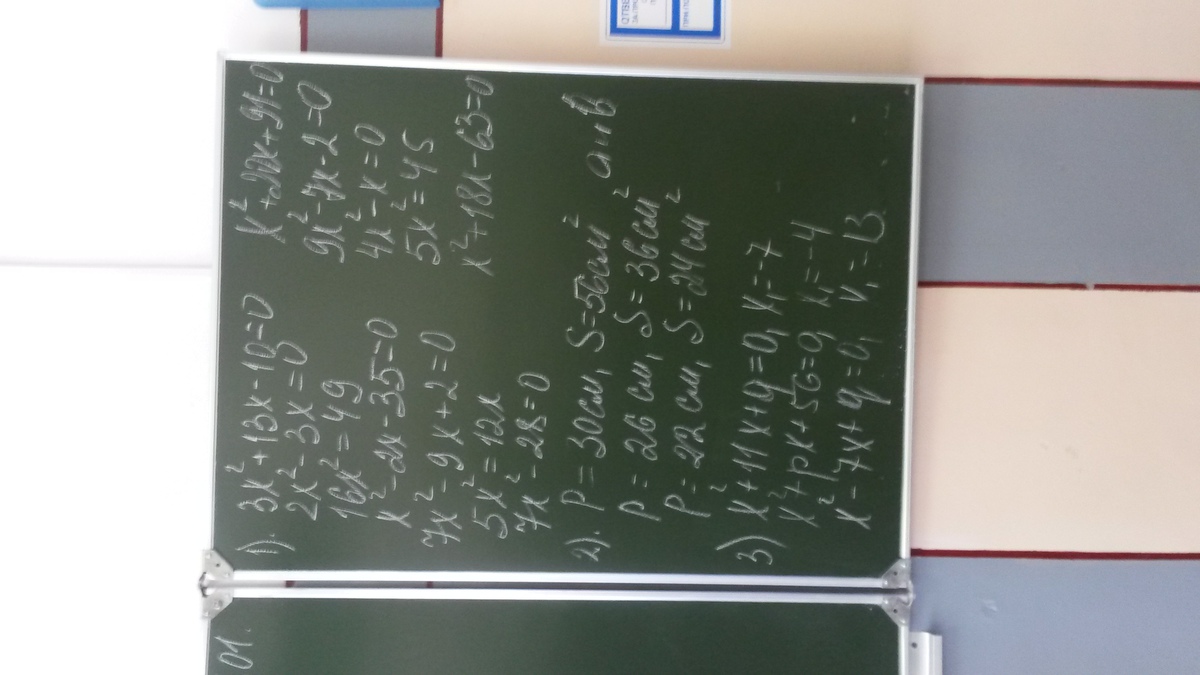 01.
1). 3x² + 13x - 10 = 0
2x² - 3x = 0
16x² = 49
x² - 2x - 35 = 0
7x² - 9x + 2 = 0
5x² = 12x
7x² - 28 = 0
x² + 20x + 91 = 0
9x² - 7x - 2 = 0
4x² - x = 0
5x² = 45
x² + 18x - 63 = 0
2). P = 30см, S = 56см² a и b
P = 26 см, S = 36см²
P = 22 см, S = 24 см²
3) x² + 11x + q = 0, x₁ = -7
x² + px + 56 = 0, x₁ = -4
x² - 7x + q = 0, x₁ = -13